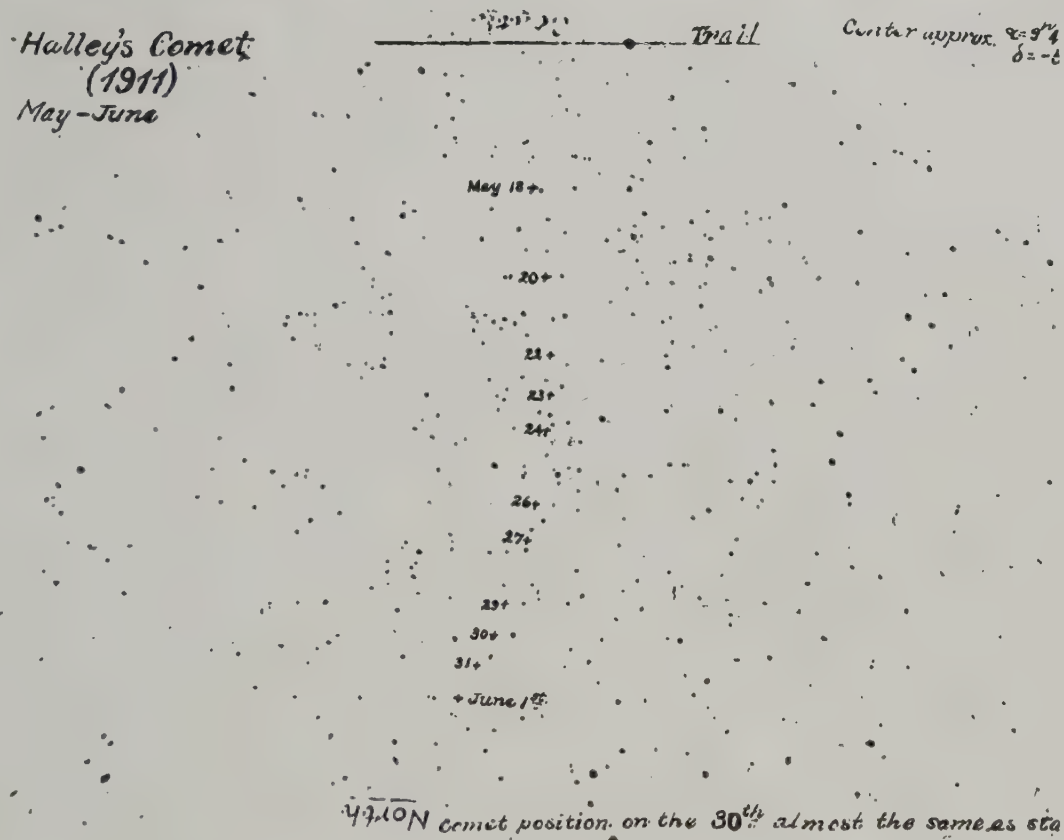 Halley's Comet
(1911)
May-June
Trail
Center approx.
May 18+
20+
22+
23+
24+
26+
27+
29+
30+
31+
+ June 1st
comet position on the 30th almost the same as sta